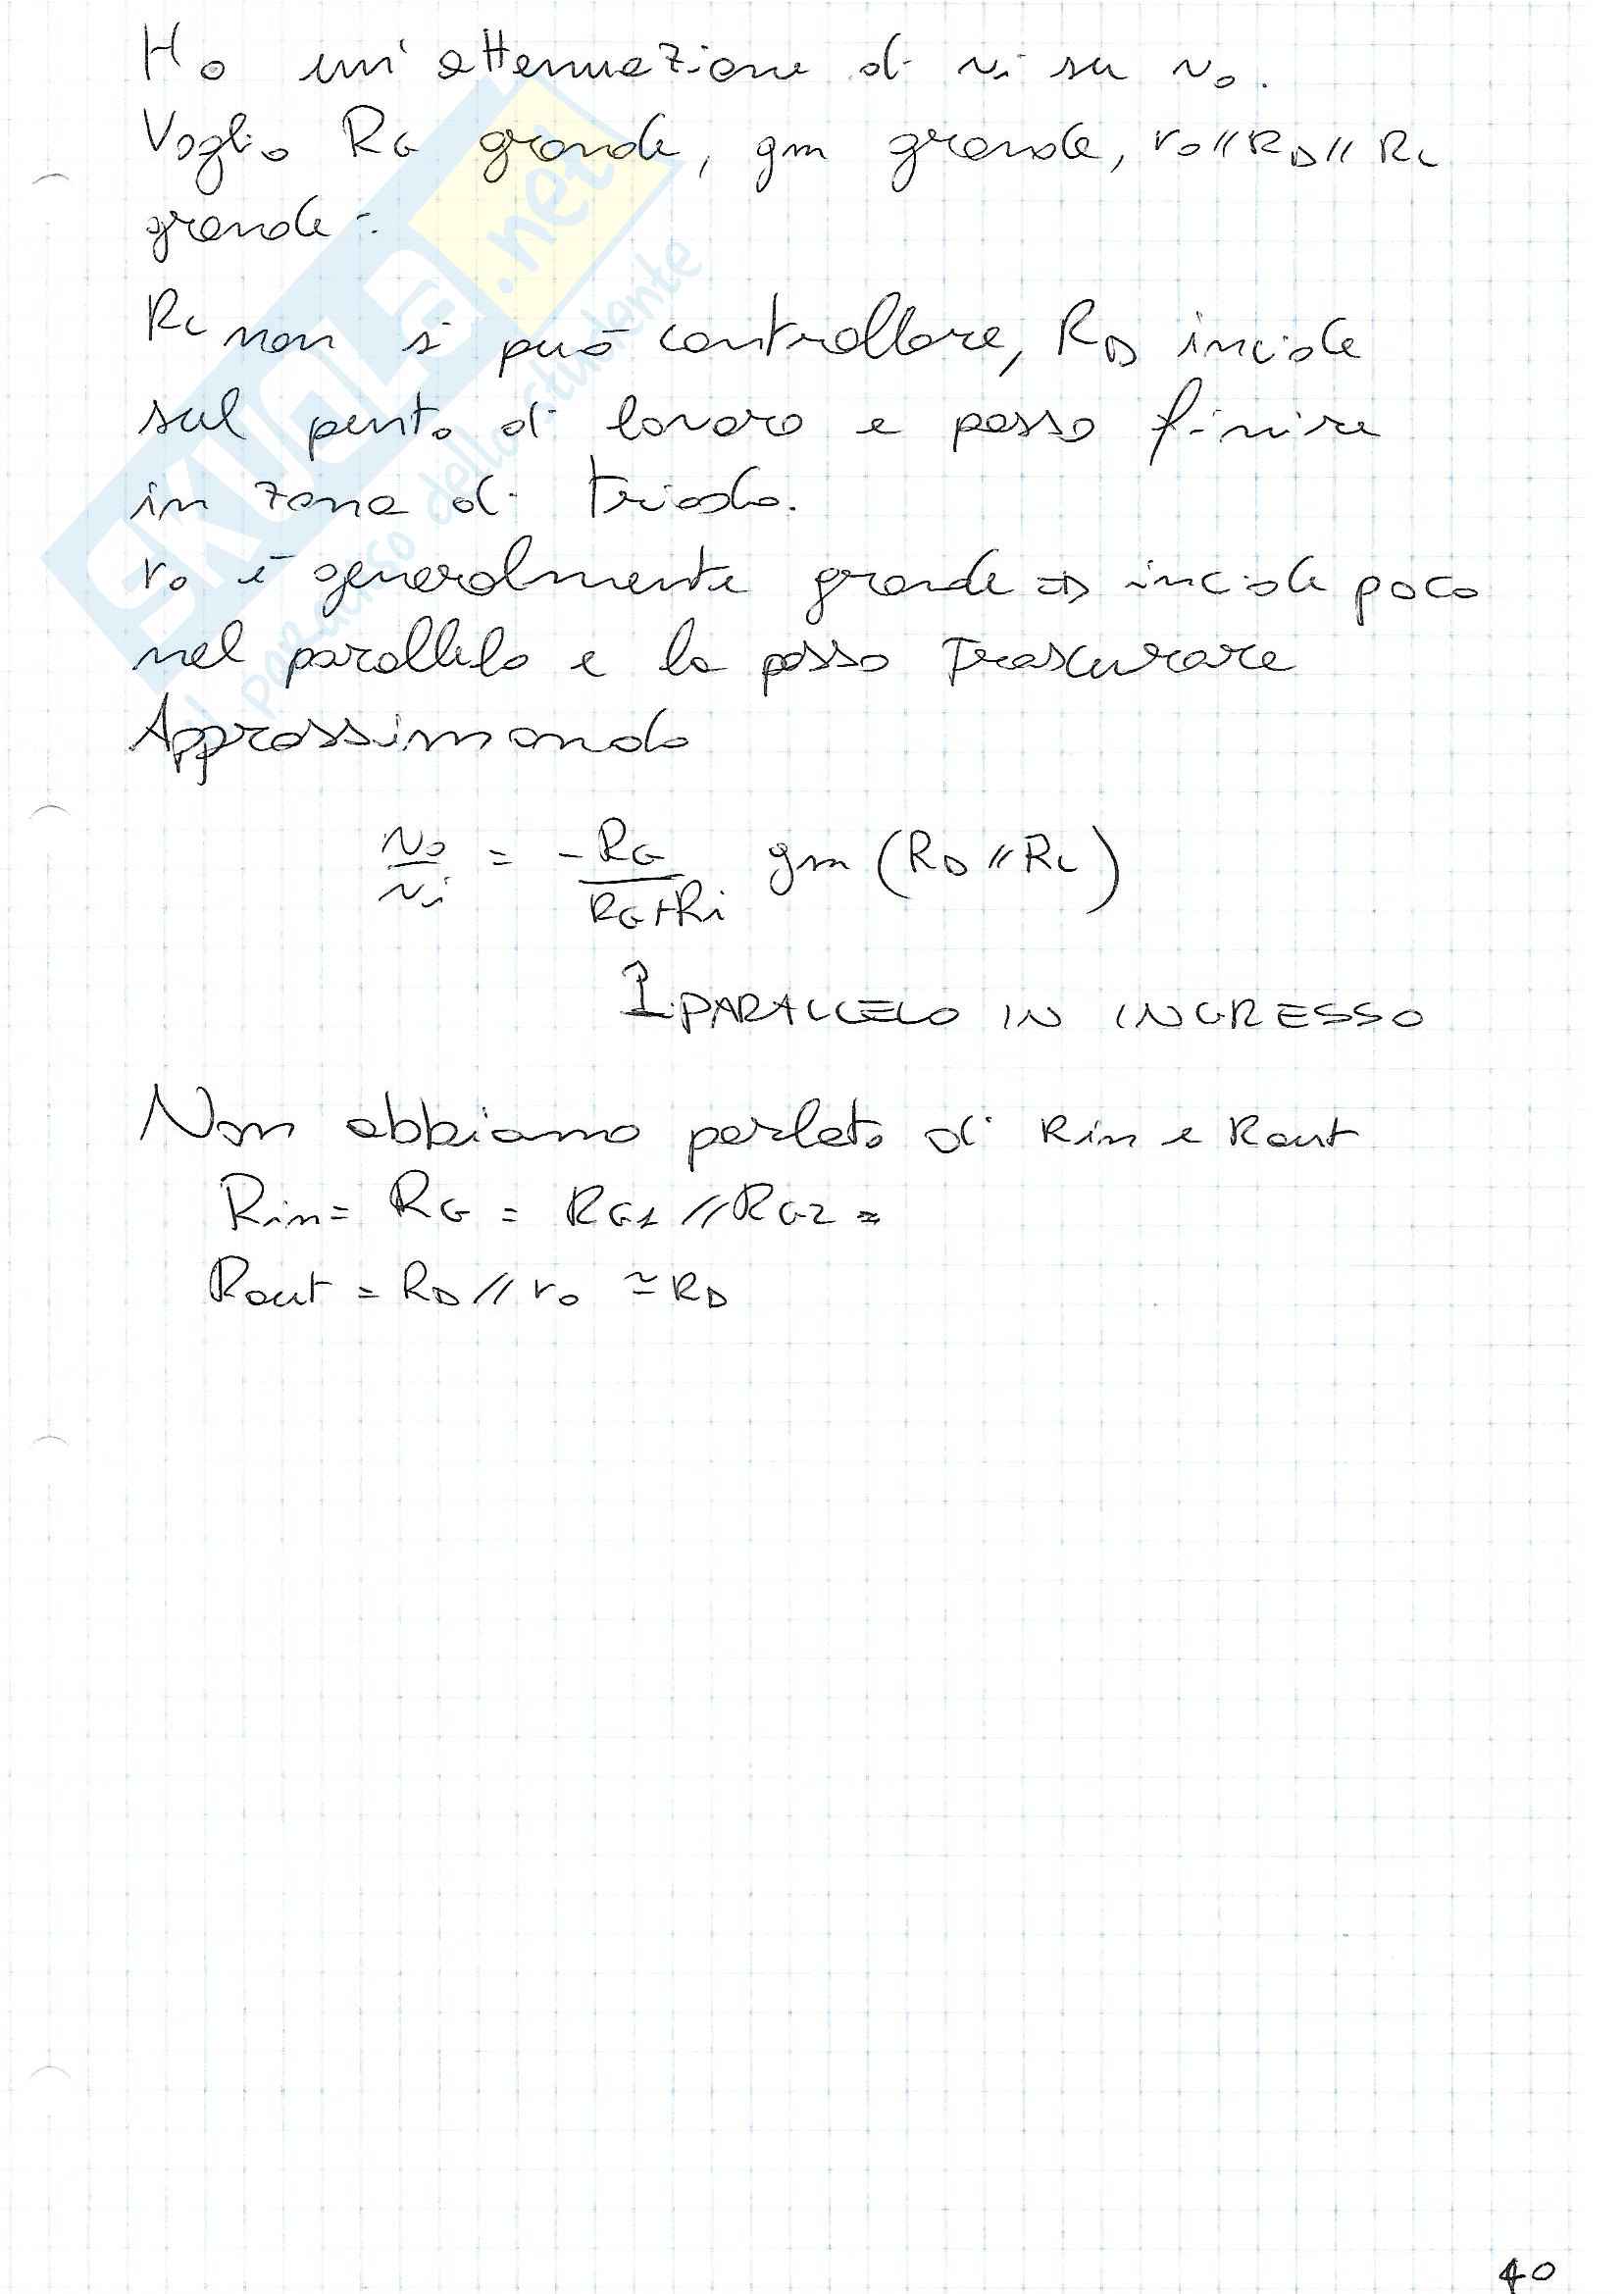 Ho un'attenuazione di vi su vo.
Voglio RG grande, gm grande, ro//RD//RL
grande.
RL non si può controllare, RD incide
sul punto di lavoro e posso finire
in zona di triodo.
ro è generalmente grande => incide poco
nel parallelo e lo posso trascurare
Approssimando
vo/vi = -RG/(RG+Ri) gm (RD//RL)
PARALLELO IN INGRESSO
Non abbiamo parlato di Rin e Rout
Rin = RG = RG1//RG2 =
Rout = RD//ro ≃ RD
40
SKUOLA.net
il paradiso dello studente